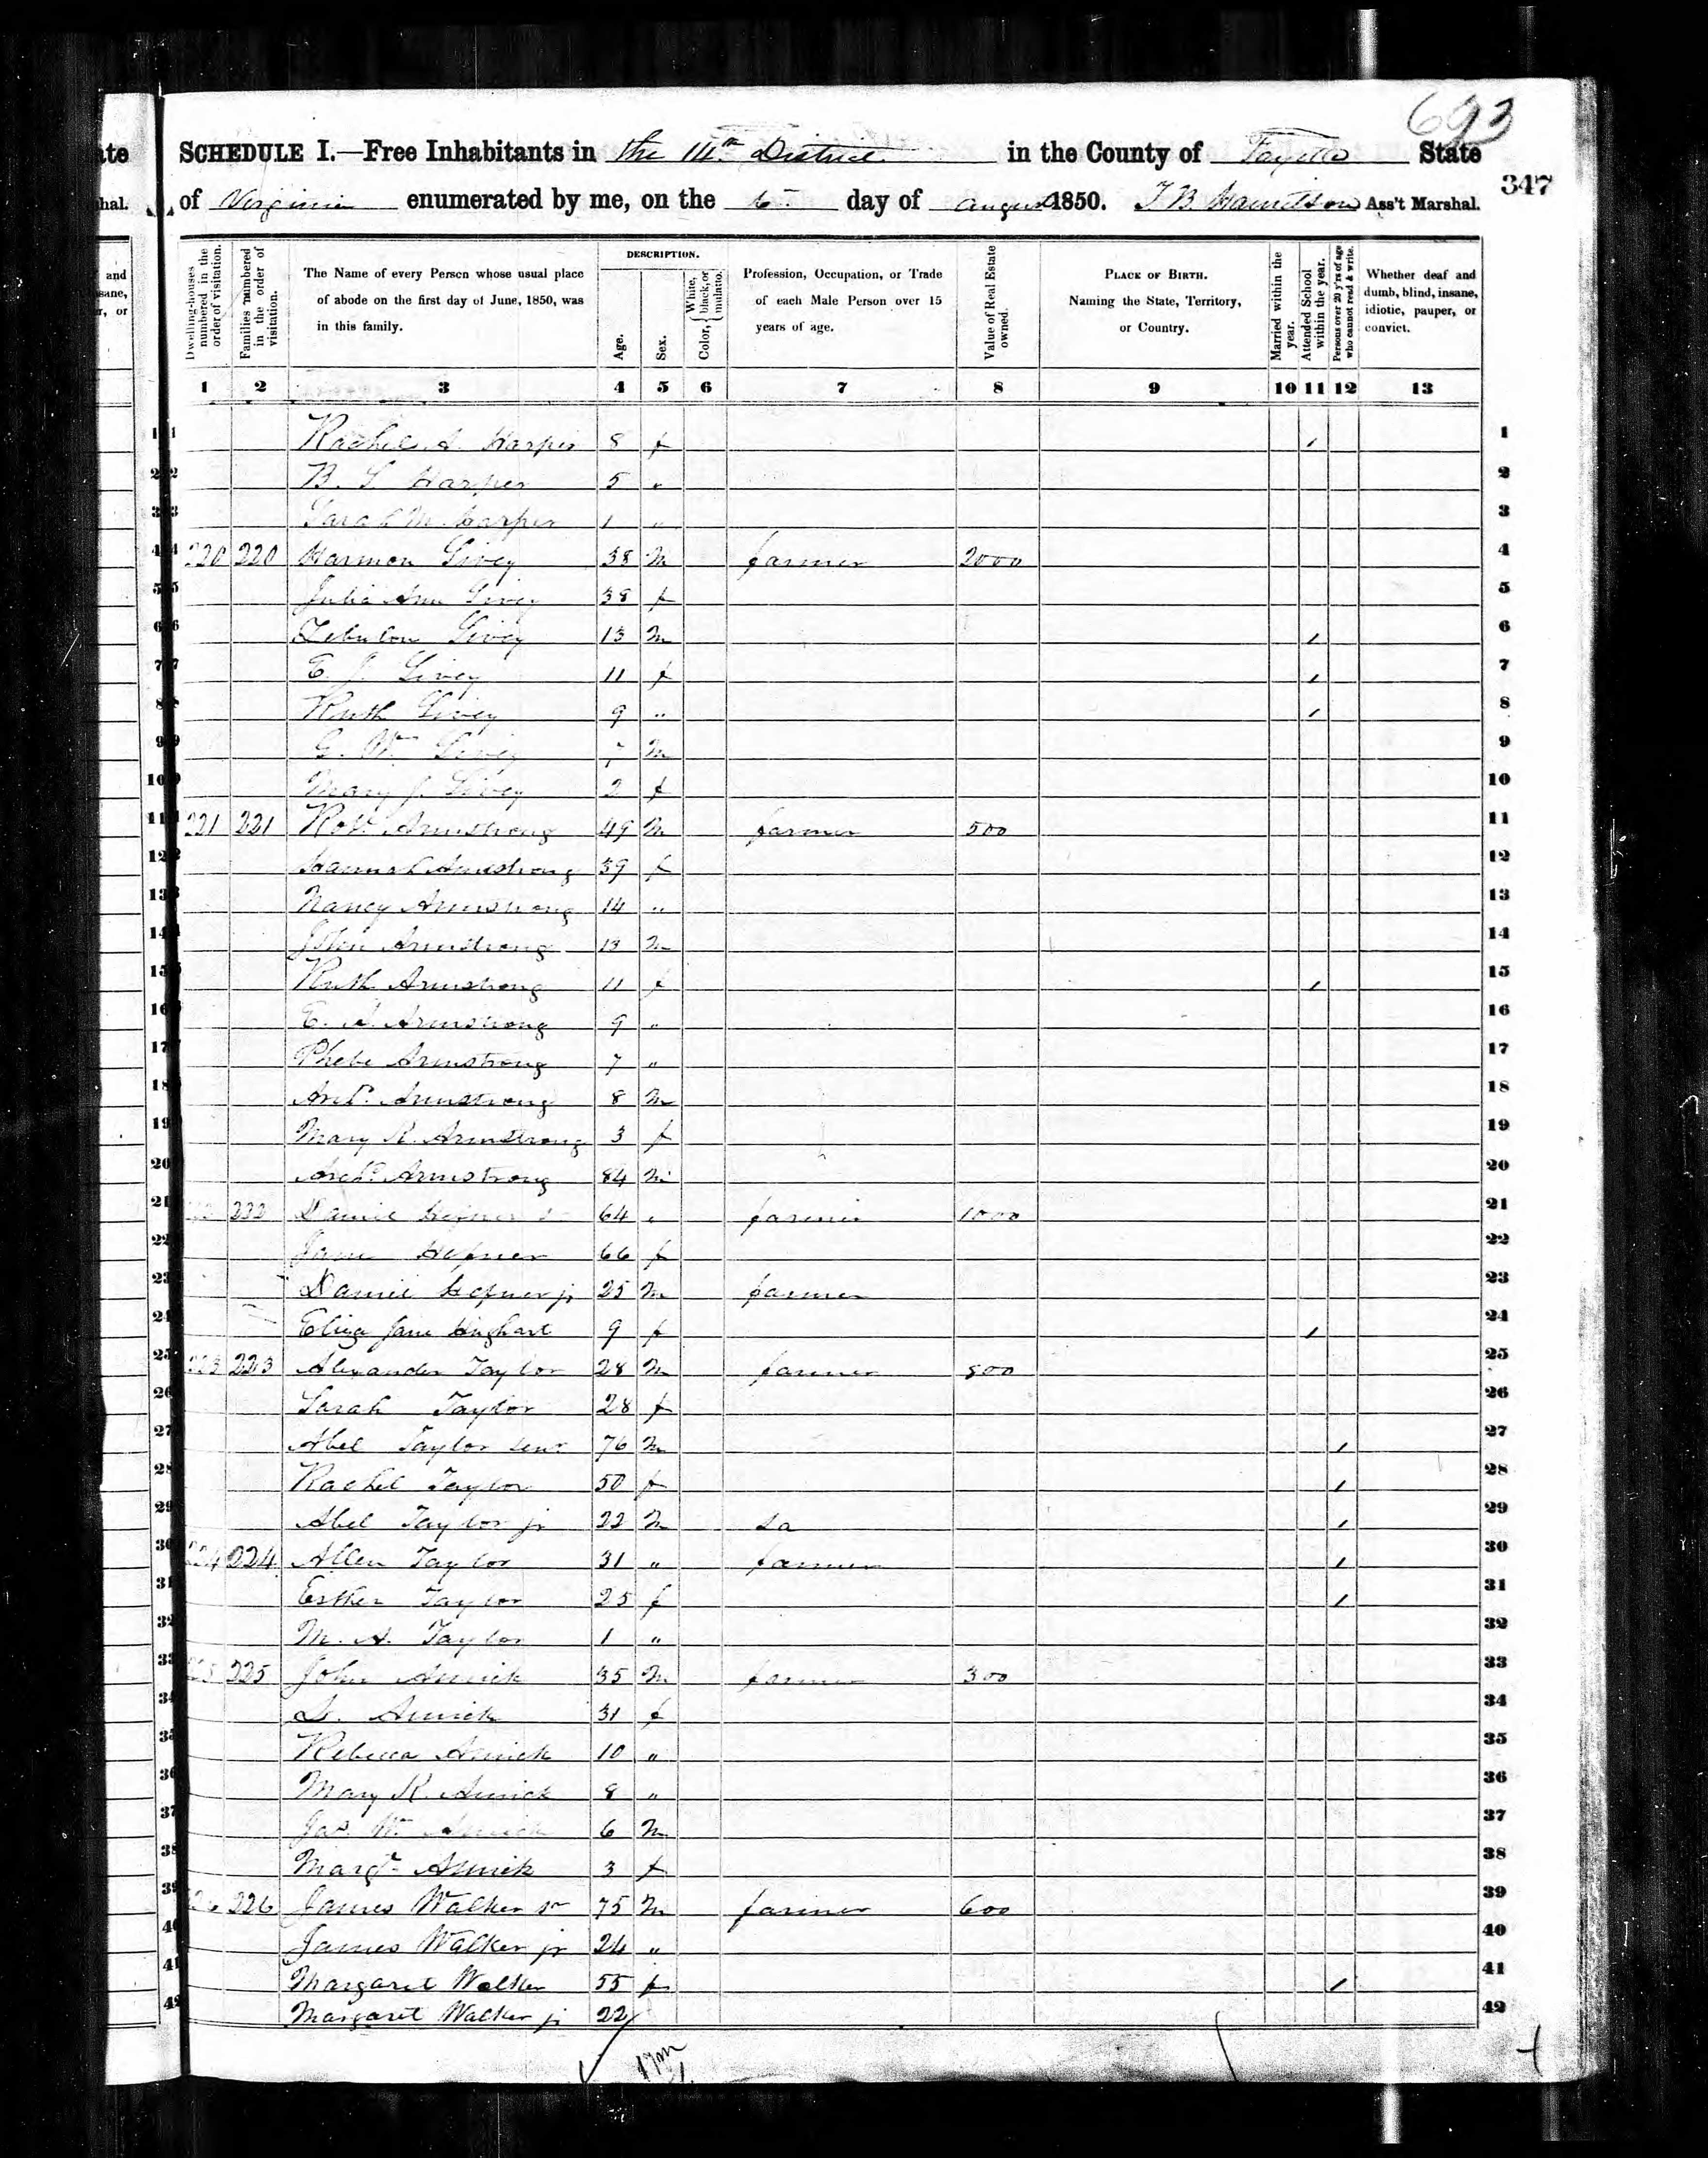 693
SCHEDULE I.—Free Inhabitants in the 14th District in the County of Fayette State
of Virginia enumerated by me, on the 6 day of August 1850. Ass't Marshal.
347
Dwelling-houses numbered in the order of visitation.
Families numbered in the order of visitation.
The Name of every Person whose usual place of abode on the first day of June, 1850, was in this family.
DESCRIPTION.
Age.
Sex.
Color, { White, black, or mulatto.
Profession, Occupation, or Trade of each Male Person over 15 years of age.
Value of Real Estate owned.
PLACE OF BIRTH. Naming the State, Territory, or Country.
Married within the year.
Attended School within the year.
Persons over 20 y'rs of age who cannot read & write.
Whether deaf and dumb, blind, insane, idiotic, pauper, or convict.
1 2 3 4 5 6 7 8 9 10 11 12 13
1 Rachel A. Harper 8 f / 1
2 B. S. Harper 5 " 2
3 Sarah M. Harper 1 " 3
4 220 220 Harmon Livey 38 M farmer 2000 4
5 Julia Ann Livey 38 f 5
6 Zebulon Livey 13 M / 6
7 E. J. Livey 11 f / 7
8 Ruth Livey 9 " / 8
9 G. W. Livey 7 M 9
10 Mary J. Livey 2 f 10
11 221 221 Robt. Armstrong 49 M farmer 500 11
12 Hannah Armstrong 39 f 12
13 Nancy Armstrong 14 " 13
14 John Armstrong 13 M 14
15 Ruth Armstrong 11 f / 15
16 E. A. Armstrong 9 " 16
17 Phebe Armstrong 7 " 17
18 Archd. Armstrong 8 M 18
19 Mary R. Armstrong 3 f 19
20 Archd. Armstrong 84 M 20
21 232 Daniel Hefner sr 64 " farmer 1000 21
22 Jane Hefner 66 f 22
23 Daniel Hefner jr 25 M farmer 23
24 Eliza Jane 9 f / 24
25 223 223 Alexander Taylor 28 M farmer 500 25
26 Sarah Taylor 28 f 26
27 Abel Taylor senr 76 M / 27
28 Rachel Taylor 50 f / 28
29 Abel Taylor jr 22 M / 29
30 224 224 Allen Taylor 31 " farmer / 30
31 Esther Taylor 25 f / 31
32 M. A. Taylor 1 " 32
33 225 225 John Amick 35 M farmer 300 33
34 Amick 31 f 34
35 Rebecca Amick 10 " 35
36 Mary R. Amick 8 " 36
37 Jas. Wm Amick 6 M 37
38 Margt. Amick 3 f 38
39 226 226 James Walker sr 75 M farmer 600 39
40 James Walker jr 24 " 40
41 Margaret Walker 55 f / 41
42 Margaret Walker jr 22 42